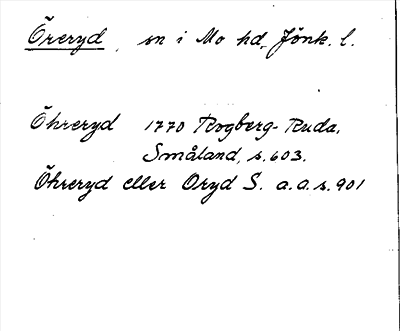 Öreryd, sn i Mo hd, Jönk. l.
Öhreryd 1770 Rogberg-Ruda,
Småland, s. 603.
Öhreryd eller Oryd S. a.a. s. 901